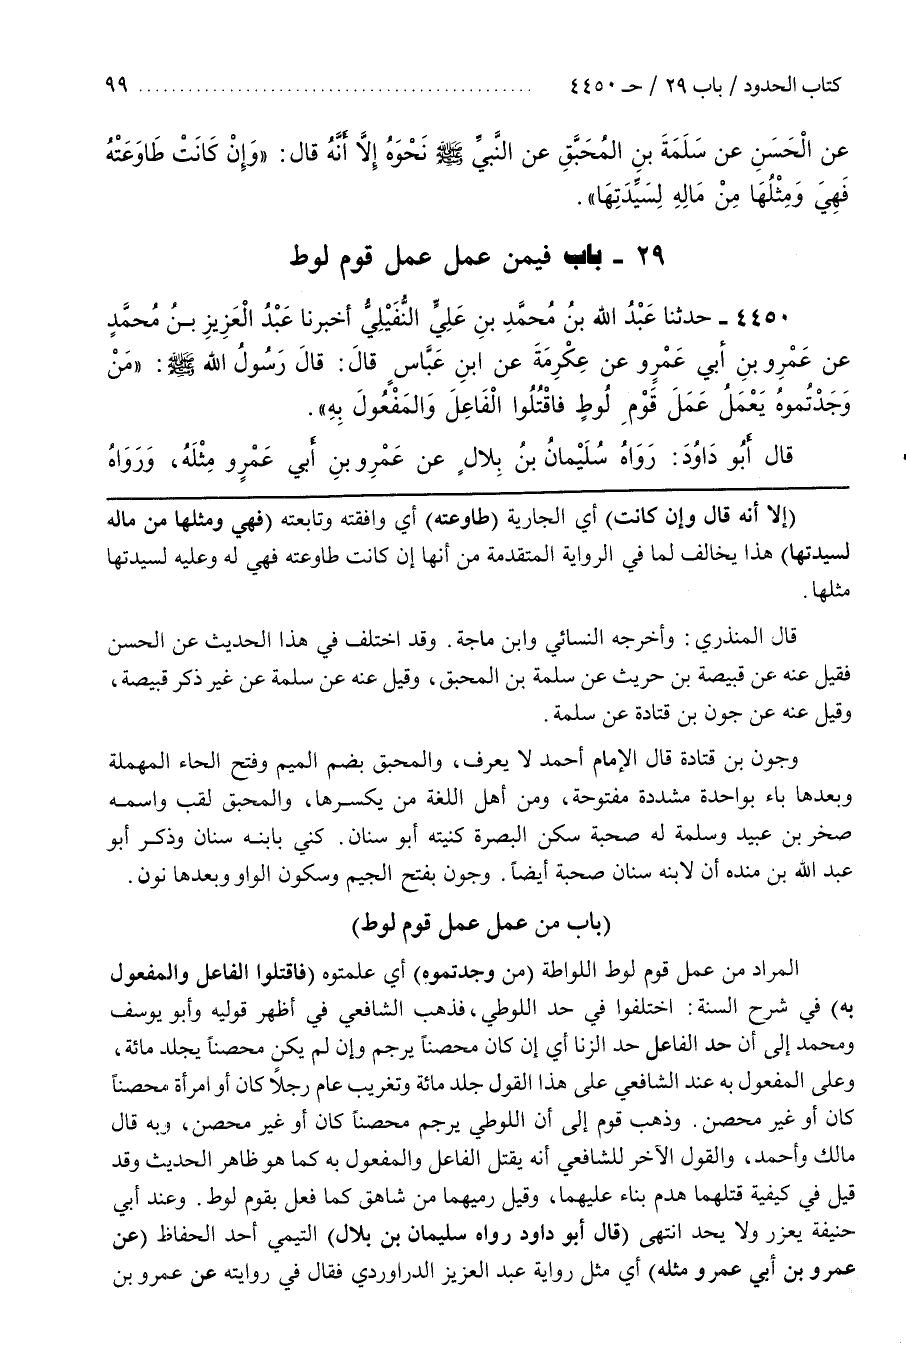 كتاب الحدود / باب ٢٩ / حـ ٤٤٥٠ ................................................ ٩٩
عن الْحَسَنِ عن سَلَمَةَ بنِ المُحَبَّقِ عن النَّبيِّ ﷺ نَحْوَهُ إلَّا أَنَّهُ قال: «وَإنْ كَانَتْ طَاوَعَتْهُ
فَهِيَ وَمِثْلُهَا مِنْ مَالِهِ لِسَيِّدَتِهَا».
٢٩ - باب فيمن عمل عمل قوم لوط
٤٤٥٠ - حدثنا عَبْدُ الله بنُ مُحمَّدِ بنِ عَلِيٍّ النُّفَيْلِيُّ أخبرنا عَبْدُ الْعَزِيزِ بـنُ مُحمَّدٍ
عن عَمْرِو بنِ أَبي عَمْرٍو عن عِكْرِمَةَ عن ابنِ عَبَّاسٍ قالَ: قالَ رَسُولُ الله ﷺ: «مَنْ
وَجَدْتُموهُ يَعْمَلُ عَمَلَ قَوْمِ لُوطٍ فاقْتُلُوا الْفَاعِلَ وَالمَفْعُولَ بِهِ».
قال أَبُو دَاوُدَ: رَوَاهُ سُلَيْمانُ بنُ بِلالٍ عن عَمْرِو بنِ أَبي عَمْرٍو مِثْلَهُ، وَرَوَاهُ
(إلا أنه قال وإن كانت) أي الجارية (طاوعته) أي وافقته وتابعته (فهي ومثلها من ماله
لسيدتها) هذا يخالف لما في الرواية المتقدمة من أنها إن كانت طاوعته فهي له وعليه لسيدتها
مثلها.
قال المنذري: وأخرجه النسائي وابن ماجة. وقد اختلف في هذا الحديث عن الحسن
فقيل عنه عن قبيصة بن حريث عن سلمة بن المحبق، وقيل عنه عن سلمة عن غير ذكر قبيصة،
وقيل عنه عن جون بن قتادة عن سلمة.
وجون بن قتادة قال الإمام أحمد لا يعرف، والمحبق بضم الميم وفتح الحاء المهملة
وبعدها باء بواحدة مشددة مفتوحة، ومن أهل اللغة من يكسرها، والمحبق لقب واسمه
صخر بن عبيد وسلمة له صحبة سكن البصرة كنيته أبو سنان. كني بابنه سنان وذكر أبو
عبد الله بن منده أن لابنه سنان صحبة أيضاً. وجون بفتح الجيم وسكون الواو وبعدها نون.
(باب من عمل عمل قوم لوط)
المراد من عمل قوم لوط اللواطة (من وجدتموه) أي علمتوه (فاقتلوا الفاعل والمفعول
به) في شرح السنة: اختلفوا في حد اللوطي، فذهب الشافعي في أظهر قوليه وأبو يوسف
ومحمد إلى أن حد الفاعل حد الزنا أي إن كان محصناً يرجم وإن لم يكن محصناً يجلد مائة،
وعلى المفعول به عند الشافعي على هذا القول جلد مائة وتغريب عام رجلاً كان أو امرأة محصناً
كان أو غير محصن. وذهب قوم إلى أن اللوطي يرجم محصناً كان أو غير محصن، وبه قال
مالك وأحمد، والقول الآخر للشافعي أنه يقتل الفاعل والمفعول به كما هو ظاهر الحديث وقد
قيل في كيفية قتلهما هدم بناء عليهما، وقيل رميهما من شاهق كما فعل بقوم لوط. وعند أبي
حنيفة يعزر ولا يحد انتهى (قال أبو داود رواه سليمان بن بلال) التيمي أحد الحفاظ (عن
عمرو بن أبي عمرو مثله) أي مثل رواية عبد العزيز الدراوردي فقال في روايته عن عمرو بن